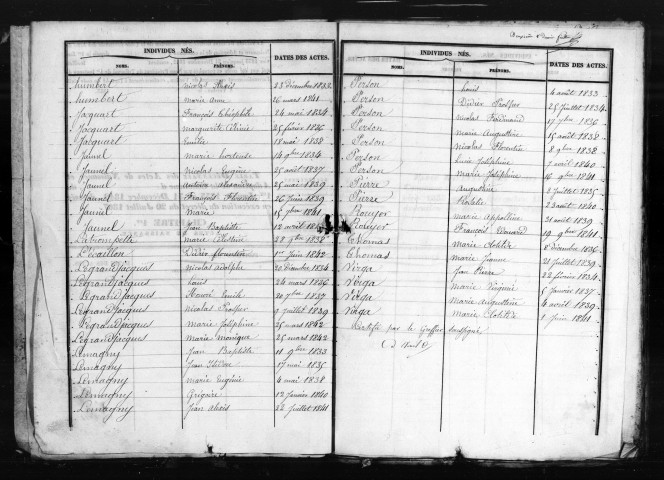 INDIVIDUS NÉS.
NOMS. PRÉNOMS. DATES DES ACTES.
humbert nicolas Alexis 23 décembre 1832
humbert marie anne 26 mars 1841
Jacquart François Théophile 24 mai 1834
Jacquart marguerite Célinie 25 février 1836
Jacquart Emilie 18 mai 1838
Jaunel marie hortense 14 9bre 1834
Jaunel nicolas Eugène 25 août 1837
Jaunel 25 mai 1839
Jaunel François Florentin 26 Juin 1839
Jaunel marie 15 9bre 1841
Jaunel Jean Baptiste 12 avril
Latrompette marie Célestine 28 9bre 1838
Levaillon Didier florentin 1er Juin 1842
Legrand Jacques nicolas adolphe 30 décembre 1834
Legrand Jacques Louis 24 mars 1836
Legrand Jacques Honoré Emile 20 7bre 1837
Legrand Jacques nicolas Prosper 9 juillet 1839
Legrand Jacques marie Joséphine 25 mars 1842
Legrand Jacques marie monique 25 mars 1842
Lemagny Jean Baptiste 11 9bre 1833
Lemagny Jean Isidore 17 mai 1835
Lemagny marie Eugénie 4 mai 1838
Lemagny Grégoire 12 Janvier 1840
Lemagny Jean alexis 22 Juillet 1841
INDIVIDUS NÉS.
NOMS. PRÉNOMS. DATES DES ACTES.
Person Louis 4 août 1833
Person Didier Prosper 25 Juillet 1834
Person nicolas Ferdinand 17 7bre 1836
Person marie Augustine 15 août 1838
Person nicolas Florentin 8 9bre 1838
Person Lucie Joséphine 7 avril 1840
Person marie Joséphine 16 9bre 1841
Pierre Augustine 2 Juillet 1835
Pierre Rosalie 23 août 1840
Rouyer marie appoline 31 août 1839
Rouyer François Edouard 19 9bre 1841
Thomas marie Clotilde 8 décembre 1836
Thomas marie Jeanne 21 Juillet 1839
Virga Jean Pierre 22 février 1834
Virga marie Virginie 5 Janvier 1837
Virga marie augustine 4 avril 1839
Virga marie Clotilde 1 Juin 1841
Certifié par le Greffier soussigné